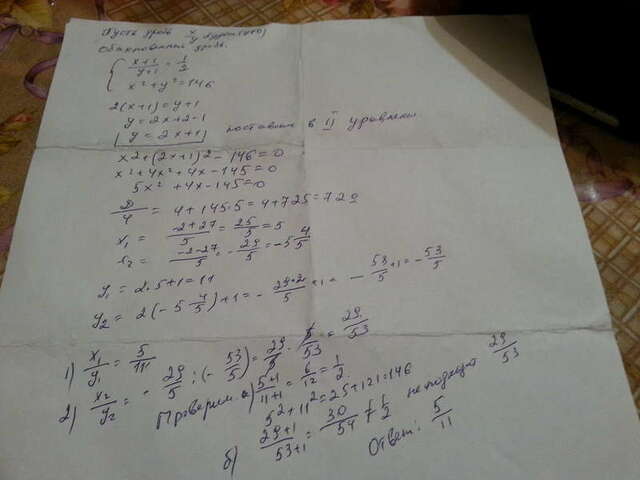 Пусть дробь x/y
обыкновенная дробь.
{ (x+1)/(y+1) = 1/2
x² + y² = 146
2(x+1) = y+1
y = 2x+2-1
y = 2x+1 поставим в II уравнение
x2 + (2x+1)2 - 146 = 0
x² + 4x² + 4x - 145 = 0
5x² + 4x - 145 = 0
D/4 = 4 + 145·5 = 4 + 725 = 729
x₁ = (-2+27)/5 = 25/5 = 5
x₂ = (-2-27)/5 = -29/5 = -5 4/5
y₁ = 2·5+1 = 11
y₂ = 2(-5 4/5)+1 = -(29·2)/5 + 1 = -58/5 + 1 = -53/5
1) x₁/y₁ = 5/11
2) x₂/y₂ = -29/5 : (-53/5) = 29/5 · 5/53 = 29/53
Проверим а) (5+1)/(11+1) = 6/12 = 1/2
5² + 11² = 25 + 121 = 146
б) (29+1)/(53+1) = 30/54 ≠ 1/2 не подходит 29/53
Ответ: 5/11